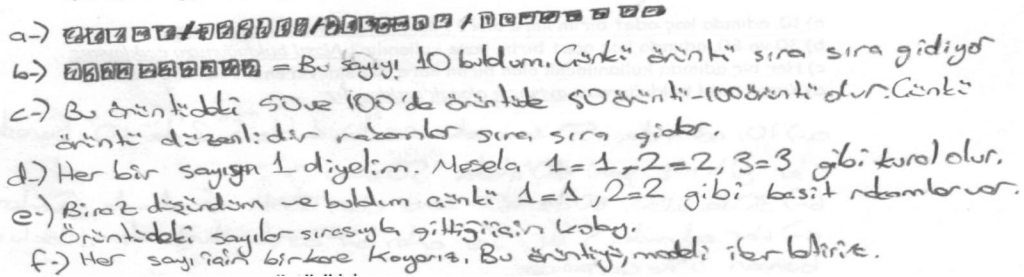 a-)
b-) = Bu sayıyı 10 buldum. Çünkü örüntü sıra sıra gidiyor
c-) Bu örüntüdeki 50 ve 100'de örüntüde 50 örüntü-100 örüntü olur. Çünkü
örüntü düzenlidir rakamlar sıra, sıra gider.
d-) Her bir sayıya 1 diyelim. Mesela, 1=1, 2=2, 3=3 gibi kural olur.
e-) Biraz düşündüm ve buldum çünkü 1=1, 2=2 gibi basit rakamlar var.
Örüntüdeki sayılar sırasıyla gittiği için kolay.
f-) Her sayı için birkere koyarız, Bu örüntüyü, modeli